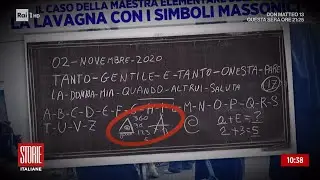 IL CASO DELLA MAESTRA ELEMENTARE
LA LAVAGNA CON I SIMBOLI MASSON
Rai 1 HD
DON MATTEO 13
QUESTA SERA ORE 21:25
02-NOVEMBRE-2020
TANTO-GENTILE-E-TANTO-ONESTA-PARE
LA-DONNA-MIA-QUANDO-ALTRUI-SALUTA
17
A-B-C-D-E-F-G-H-I-L-M-N-O-P-Q-R-S
T-U-V-Z
360
30
a+E=?
2+3=5
STORIE
ITALIANE
10:38